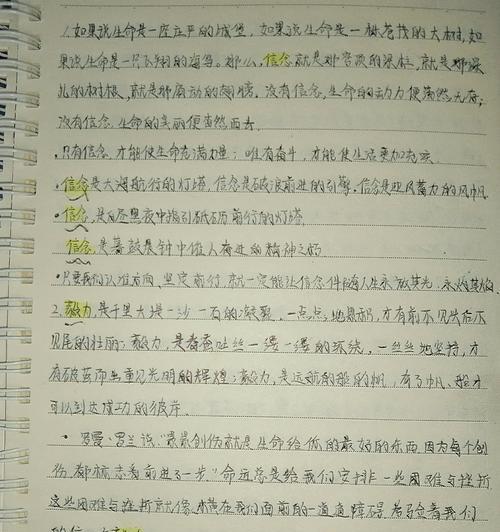 1.如果说生命是一座庄严的城堡,如果说生命是一株苍茂的大树,如
果说生命是一只飞翔的海鸟。那么,信念就是那穹顶的梁柱,就是那深
扎的树根,就是那扇动的翅膀。没有信念,生命的动力便荡然无存;
没有信念,生命的美丽便杳然西去。
·只有信念,才能使生命充满力量;唯有奋斗,才能使生活更加充实
·信念是大海航行的灯塔,信念是破浪前进的引擎,信念是迎风蓄力的风帆
·信念,是日暮黑夜中指引砥砺前行的灯塔
信念,是暮鼓晨钟中催人奋进的精神之钙
·只要我们认准方向,坚定前行,就一定能让信念伴随人生永放其光,永
2.毅力,是千里大堤一沙一石的凝聚,一点点地累积,才有前不见头后不
见尾的壮丽;毅力,是春蚕吐丝一缕一缕的环绕,一丝丝地坚持,才
有破茧而出重见光明的辉煌;毅力,是远航的船的帆,有了帆,船才
可以到达成功的彼岸。
·罗曼·罗兰说:“累累创伤就是生命给你的最好的东西,因为每个创
伤都标志着前进了一步”命运总是给我们安排一些困难与挫折
这些困难与挫折就像水横在我们面前的一道道障碍,考验着我们